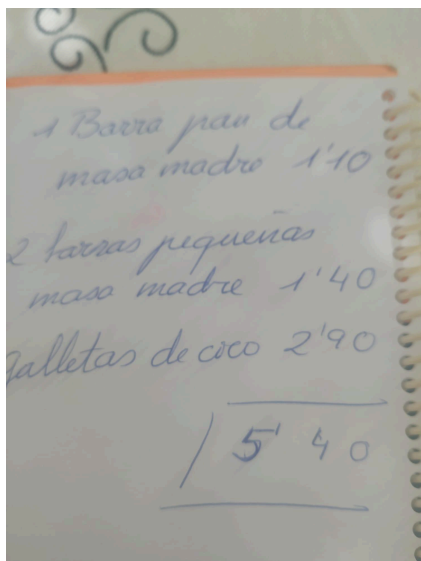 1 Barra pan de
masa madre 1'10
2 barras pequeñas
masa madre 1'40
Galletas de coco 2'90
5'40